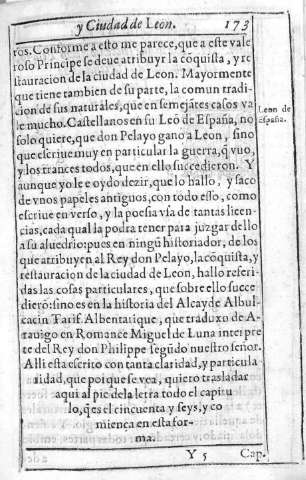 y Ciudad de Leon. 173
ros. Conforme a esto me parece, que a este vale
roso Principe se deue atribuyr la cõquista, y re
stauracion de la ciudad de Leon. Mayormente
que tiene tambien de su parte, la comun tradi
cion de sus naturales, que en semejãtes casos va
le mucho. Castellanos en su Leõ de España, no
Leon de
España.
solo quiere, que don Pelayo gano a Leon, sino
que escriue muy en particular la guerra, q̃ vuo,
y los trances todos, que en ello succedieron. Y
aunque yo le e oydo dezir, que lo hallo, y saco
de vnos papeles antiguos, con todo esso, como
escriue en verso, y la poesia vsa de tantas licen-
cias, cada qual la podra tener para juzgar dello
a su aluedrio: pues en ningũ historiador, de los
que atribuyen al Rey don Pelayo, la cõquista, y
restauracion de la ciudad de Leon, hallo referi-
das las cosas particulares, que sobre ello succe
dierõ: sino es en la historia del Alcayde Albul-
cacin Tarif. Albentarique, que traduxo de A-
rauigo en Romance Miguel de Luna interpre
te del Rey don Philippe segũdo nuestro señor.
Alli esta escrito con tanta claridad, y particula
ridad, que porque se vea, quiero trasladar
aqui al pie de la letra todo el capitu
lo, q̃ es el cincuenta y seys, y co
miença en esta for-
ma.
Y 5 Cap.